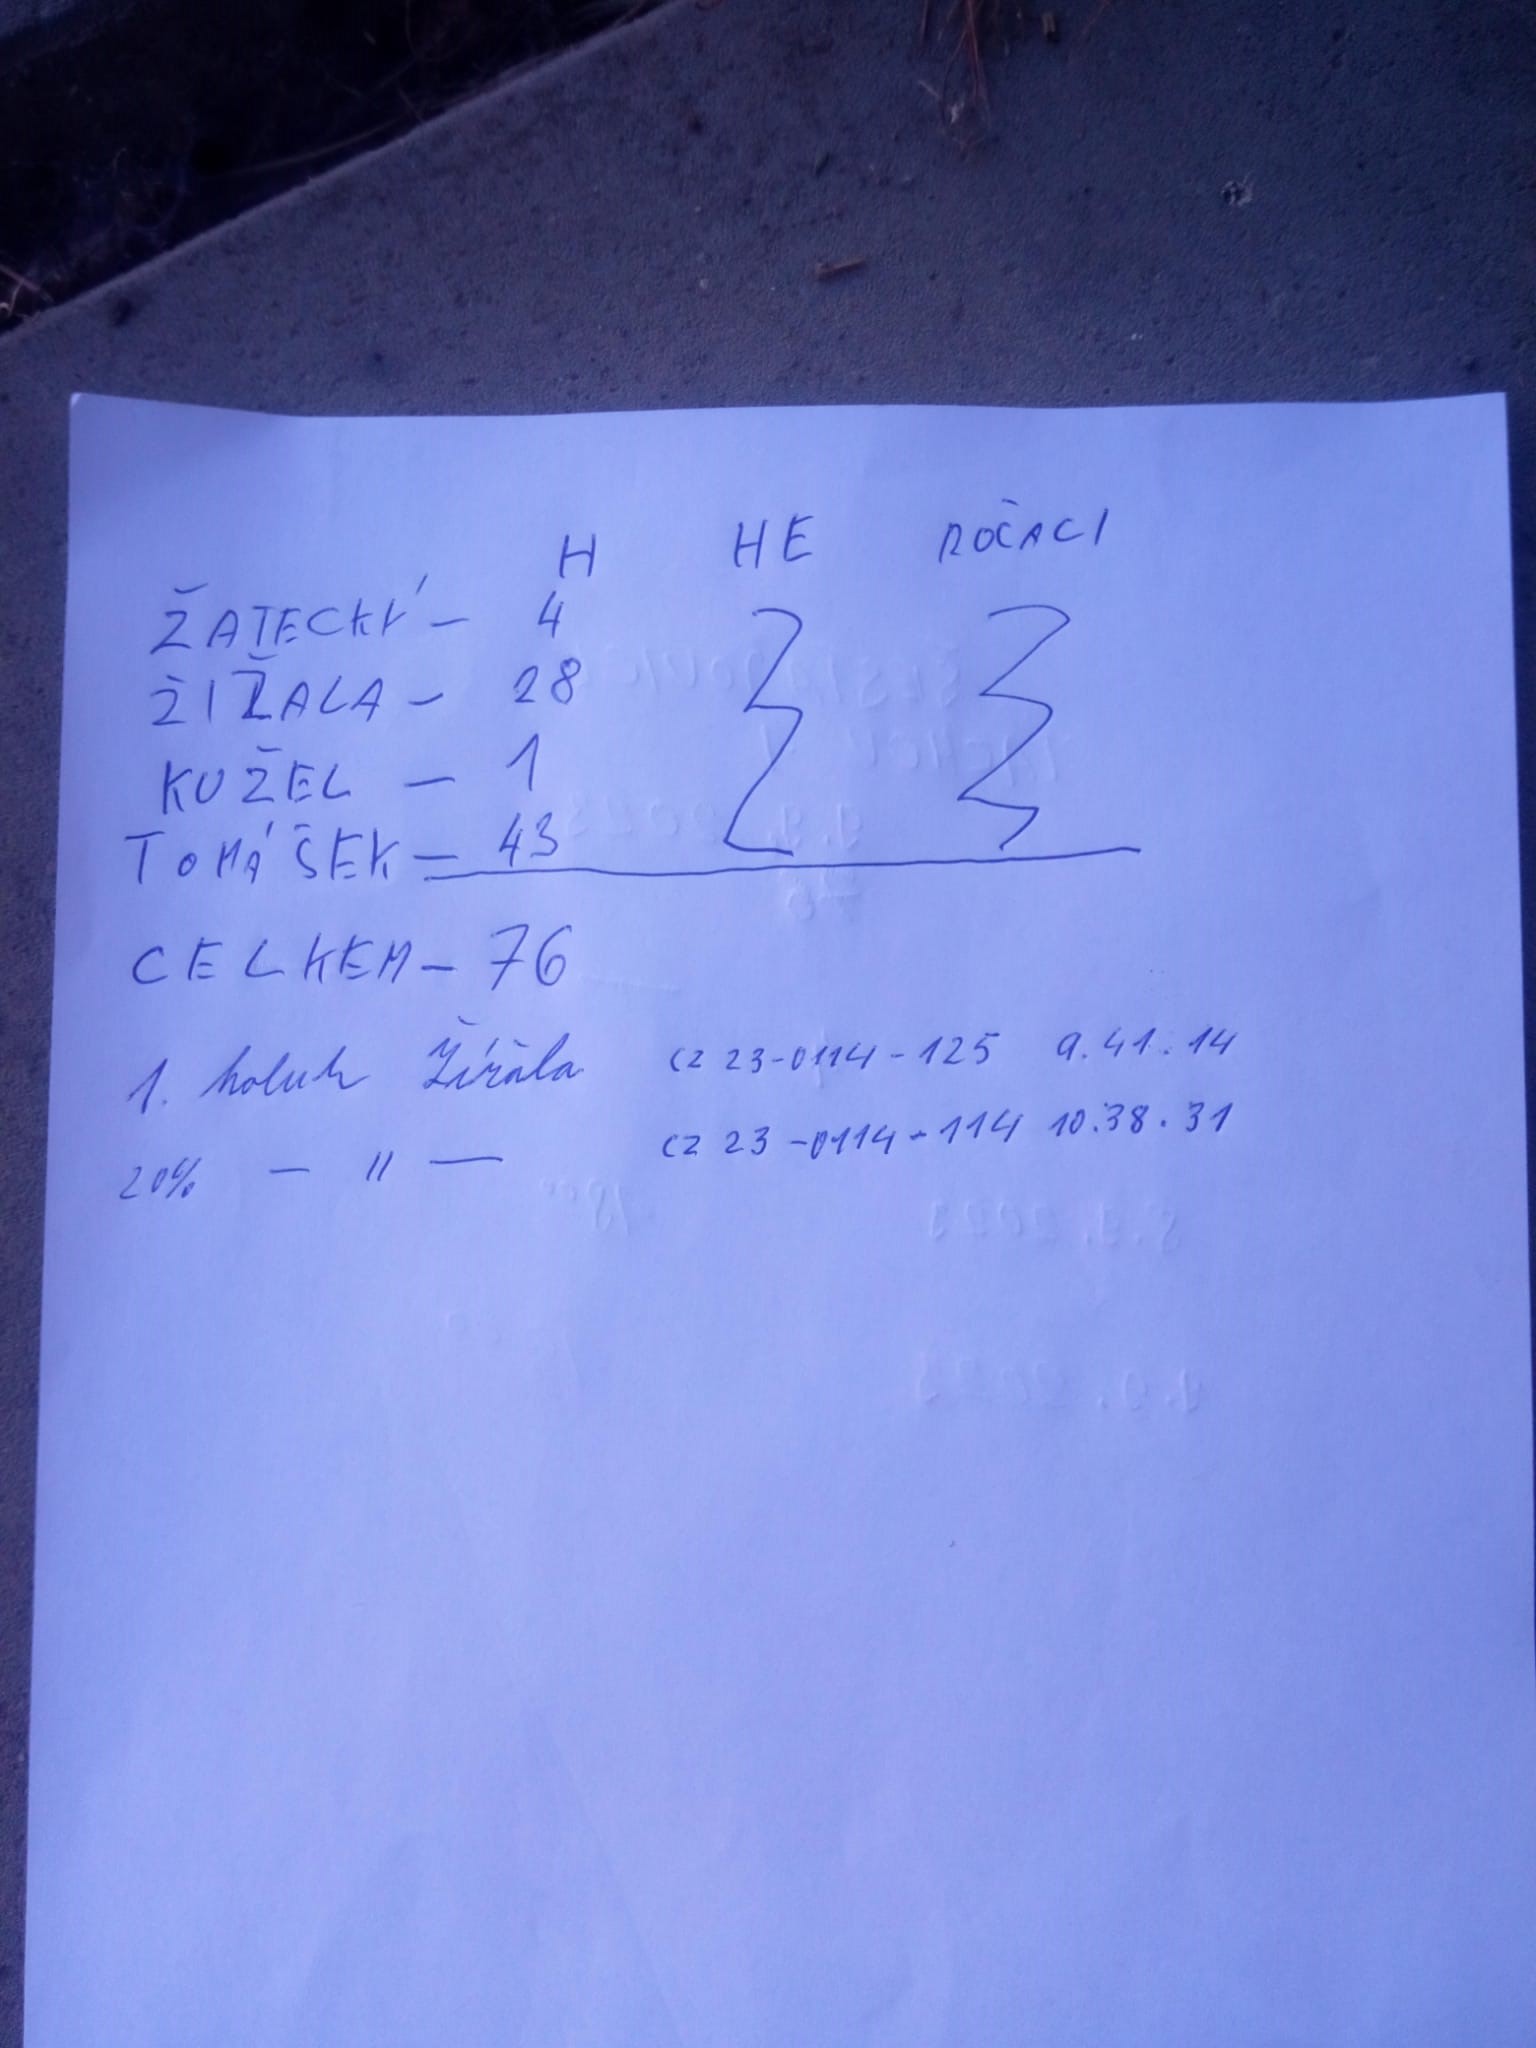 H HE ROČACI
ŽATECKÝ - 4
ŽIŽALA - 28
KUŽEL - 1
TOMÁŠEK - 43
CELKEM - 76
1. holub Žížala CZ 23-0114-125 9.41.14
20% - 11 - CZ 23-0114-114 10.38.31